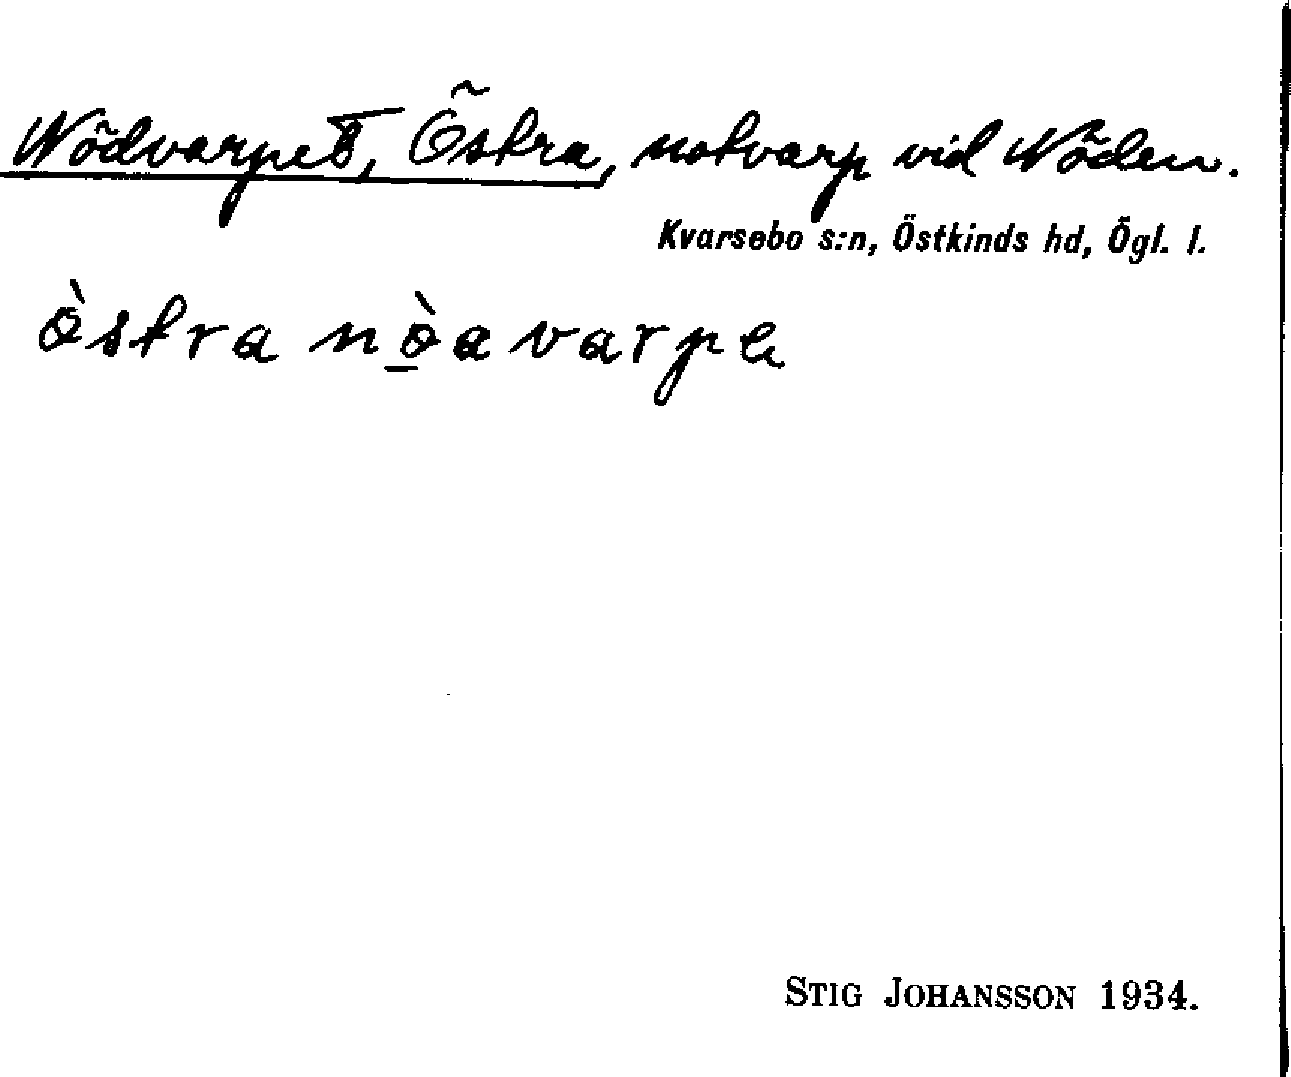 Nödvarpet, Östra, notvarp vid Nöden.
Kvarsebo s:n, Östkinds hd, Ögl. l.
ö̀stra nö̀avarpe
STIG JOHANSSON 1934.